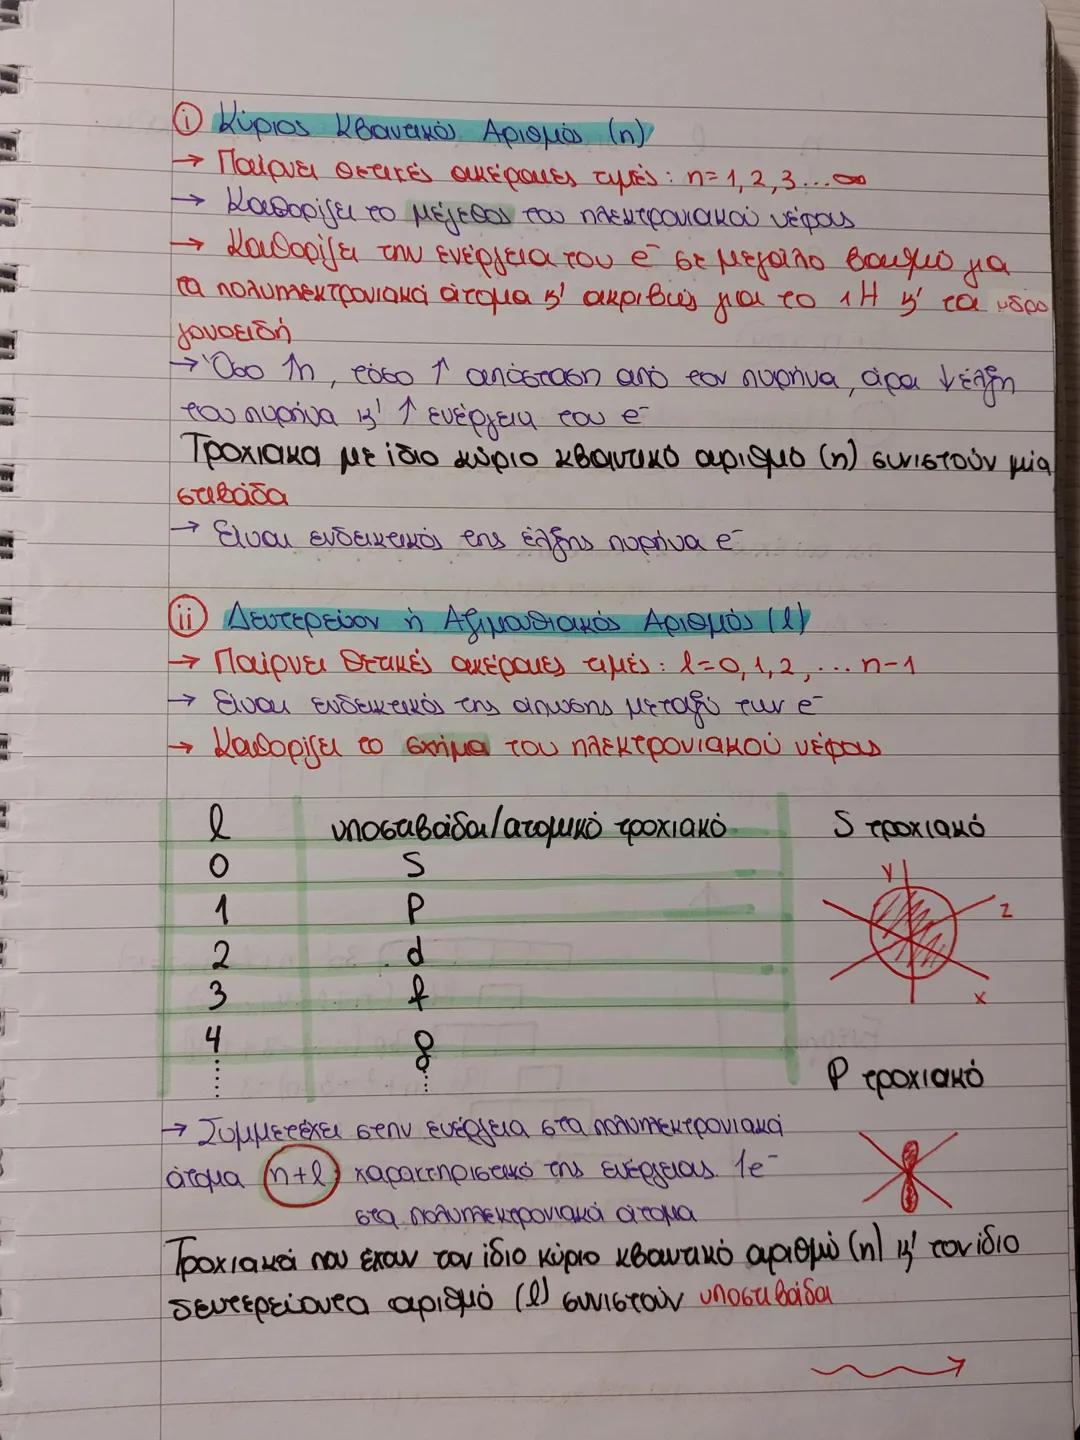 i Κύριος Κβαντικός Αριθμός (n)
→ Παίρνει θετικές ακέραιες τιμές: n=1,2,3...∞
→ Καθορίζει το μέγεθος του ηλεκτρονιακού νέφους
→ Καθορίζει την ενέργεια του e⁻ σε μεγάλο βαθμό για
τα πολυηλεκτρονιακά άτομα κ' ακριβώς για το 1H κ' τα υδρο
γονοειδή
→ Όσο ↑n, τόσο ↑ απόσταση από τον πυρήνα, άρα ↓ έλξη
του πυρήνα κ' ↑ ενέργεια του e⁻
Τροχιακά με ίδιο κύριο κβαντικό αριθμό (n) συνιστούν μία
στιβάδα
→ Είναι ενδεικτικός της έλξης πυρήνα e⁻
ii Δευτερεύον ή Αζιμουθιακός Αριθμός (l)
→ Παίρνει θετικές ακέραιες τιμές: l=0,1,2,...n-1
→ Είναι ενδεικτικός της άπωσης μεταξύ των e⁻
→ Καθορίζει το σχήμα του ηλεκτρονιακού νέφους
l υποστιβάδα/ατομικό τροχιακό S τροχιακό
0 S
y
1 P
z
2 d
3 f
x
4 g
..... ...
P τροχιακό
→ Συμμετέχει στην ενέργεια στα πολυηλεκτρονιακά
άτομα n+l χαρακτηριστικό της ενέργειας 1e⁻
στα πολυηλεκτρονιακά άτομα
Τροχιακά που έχουν τον ίδιο κύριο κβαντικό αριθμό (n) κ' τον ίδιο
δευτερεύοντα αριθμό (l) συνιστούν υποστιβάδα